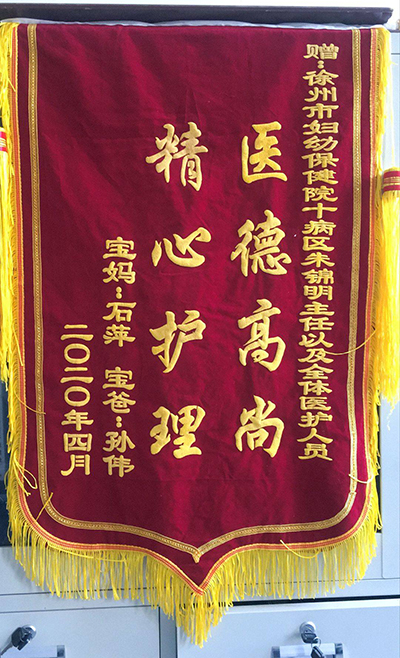 赠：徐州市妇幼保健院十病区朱锦明主任以及全体医护人员
医德高尚
精心护理
宝妈：石萍 宝爸：孙伟
二〇二〇年四月